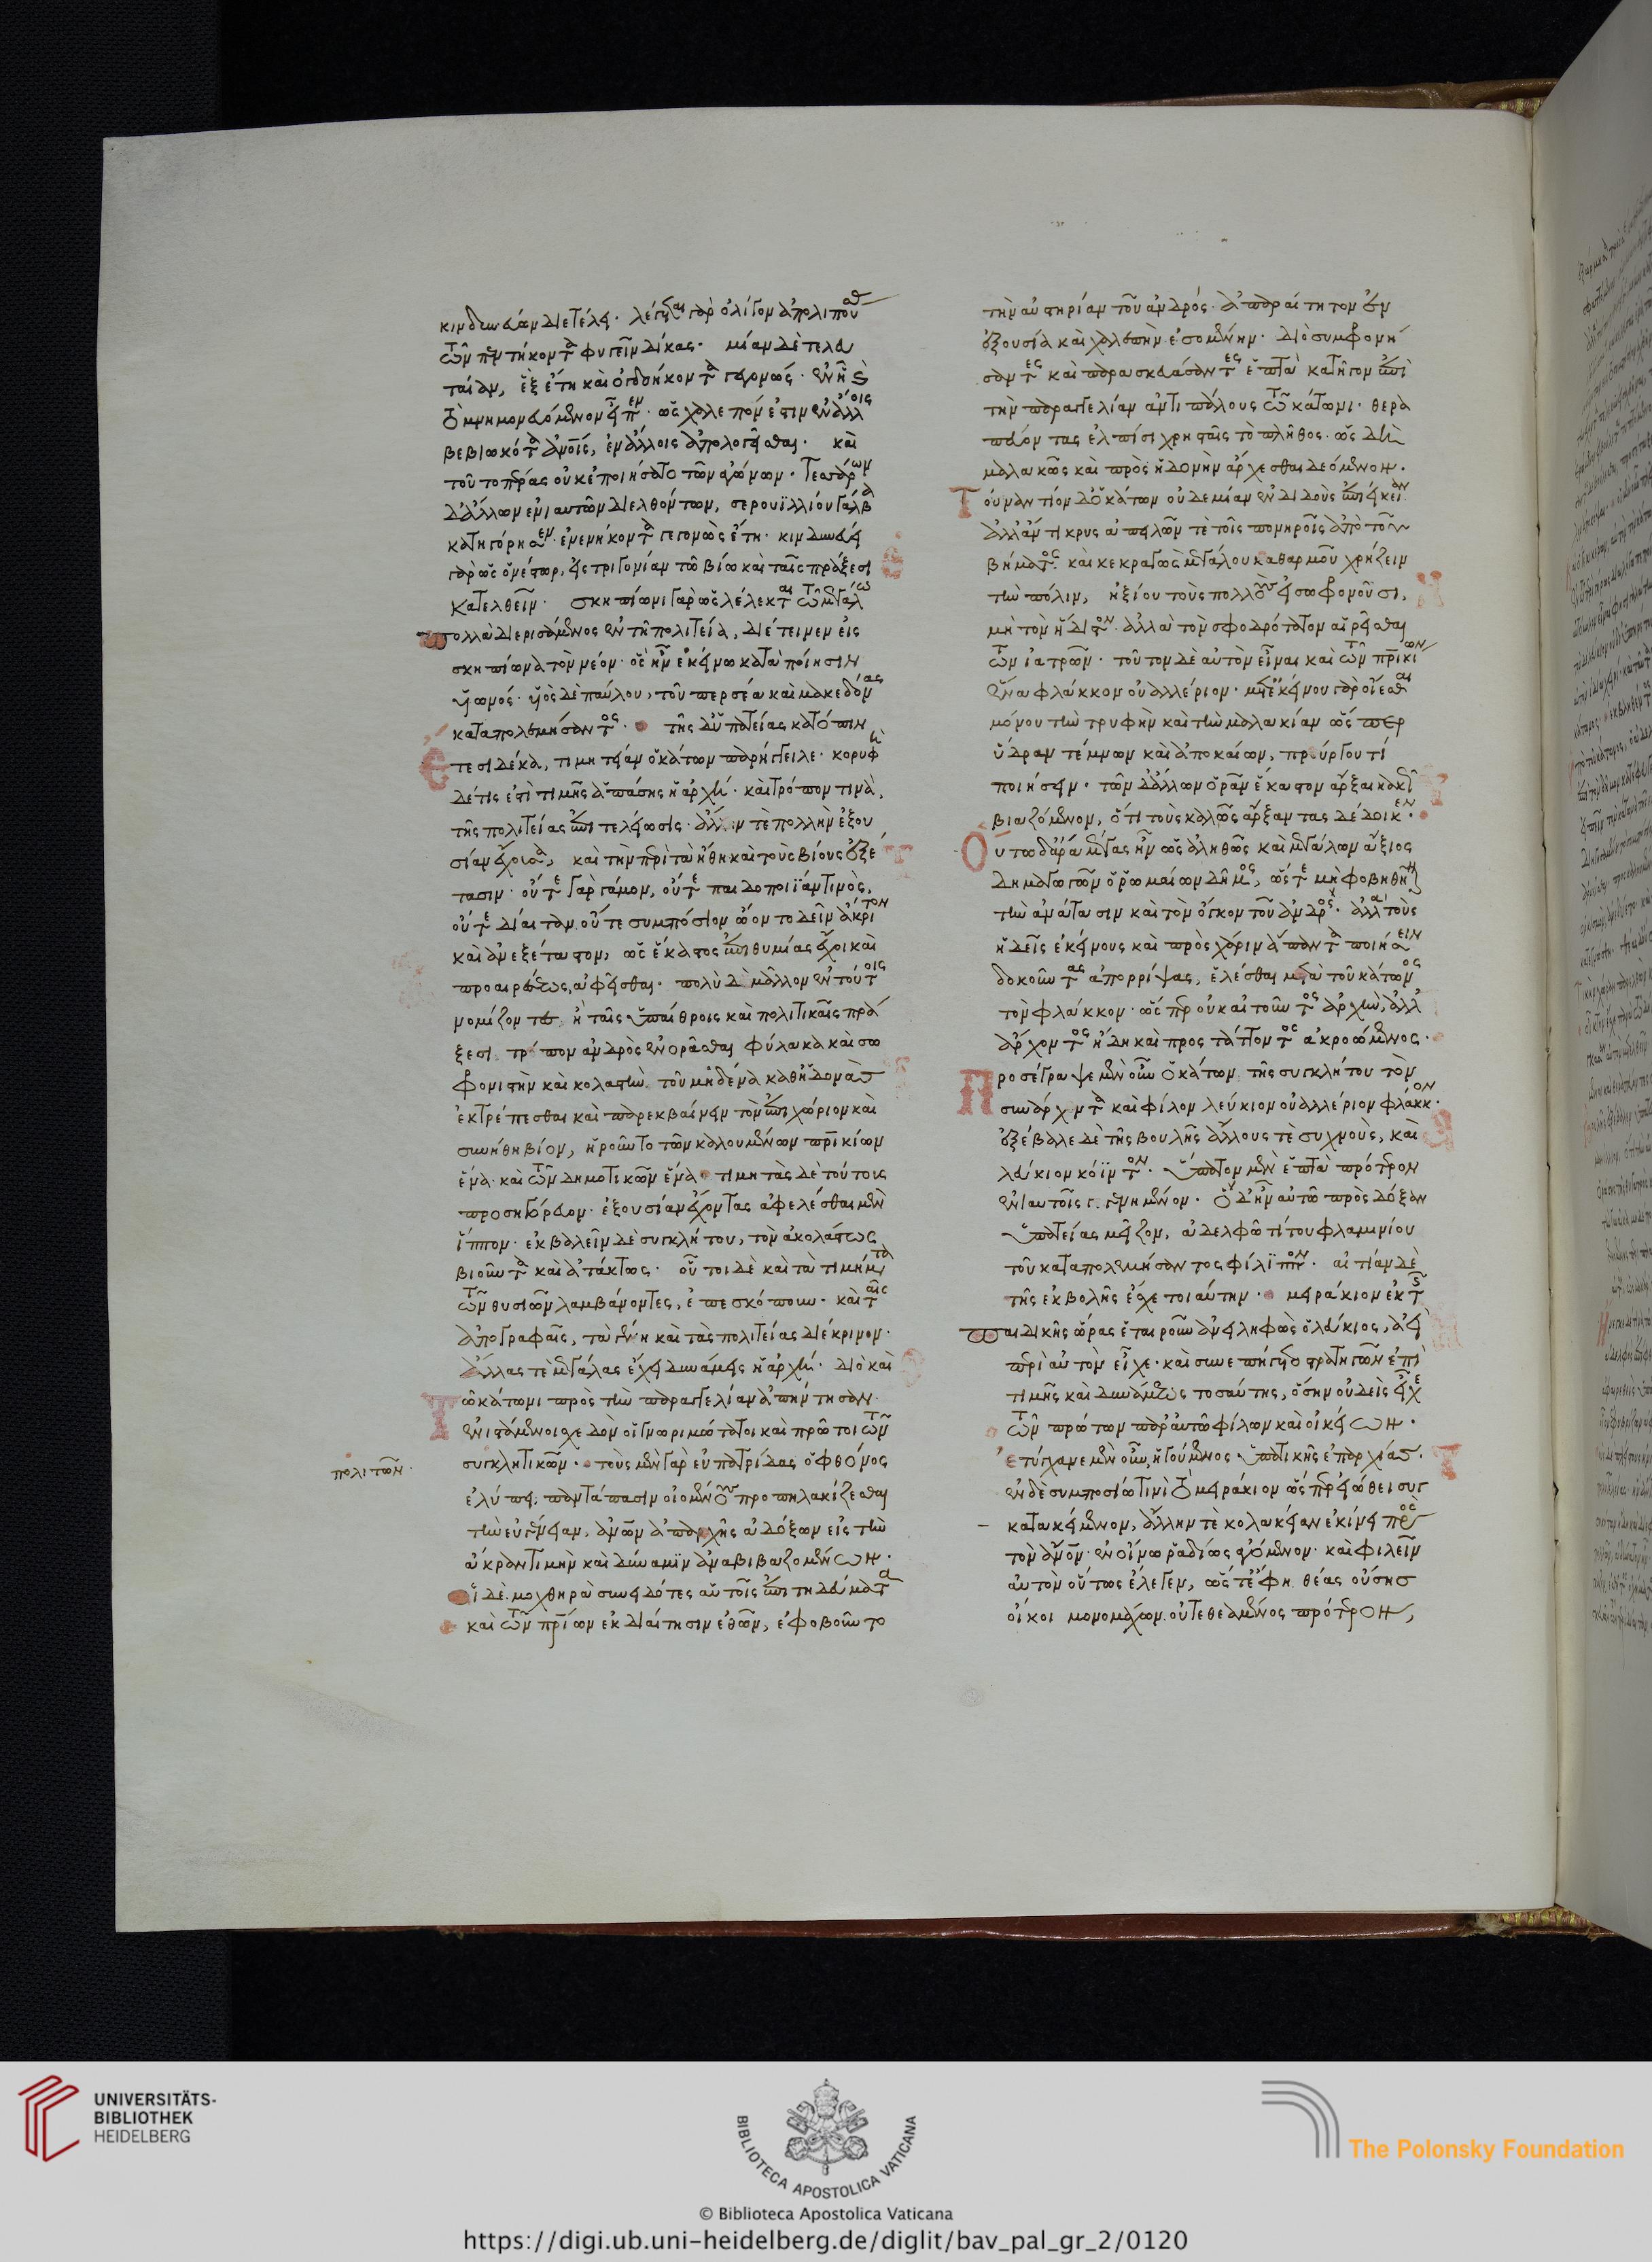 κινδυνεύων διετέλει· λέγεται γὰρ ὀλίγον ἀπολιπούσας
τῶν πεντήκοντα φυγεῖν δίκας· μίαν δὲ τελευ
ταίαν, ἓξ ἔτη καὶ ὀγδοήκοντα γεγονώς· ἐν ᾗ
τὸ μνημονευόμενον εἶπεν· ὡς χαλεπόν ἐστιν ἐν ἄλλοις
βεβιωκότα ἀνοις, ἐν ἄλλοις ἀπολογεῖσθαι· καὶ
τοῦτο πέρας οὐκ ἐποιήσατο τῶν ἀγώνων· τεσσάρων
δ' ἄλλων ἐνιαυτῶν διελθόντων, σερουϊλλίου γάλβα
κατηγόρησεν· ἐνενήκοντα γεγονὼς ἔτη· κινδυνεύει
γὰρ ὡς ὁ νέστωρ, εἰς τριγονίαν τῷ βίῳ καὶ ταῖς πράξεσι
κατελθεῖν· σκηπίωνι γὰρ ὡς λέλεκται τῷ μεγάλῳ
πολλὰ διερισάμενος ἐν τῇ πολιτείᾳ, διέτεινεν εἰς
σκηπίωνα τὸν νέον· ὃς ἦν ἐκείνῳ κατὰ ποίησιν
υἱωνός· υἱὸς δὲ παύλου, τοῦ περσέα καὶ μακεδόνας
καταπολεμήσαντος· τῆς δ' ὑπατείας κατόπιν
ἔτεσι δέκα, τιμητείαν ὁ κάτων παρήγγειλε· κορυφὴ
δέ τίς ἐστι τιμῆς ἁπάσης ἡ ἀρχή· καὶ τρόπον τινὰ,
τῆς πολιτείας ἐπιτελείωσις· ἄλλην τε πολλὴν ἐξου
σίαν ἔχουσα, καὶ τὴν περὶ τὰ ἤθη καὶ τοὺς βίους ἐξέ
τασιν· οὔτε γὰρ γάμον, οὔτε παιδοποιΐαν τινὸς,
οὔτε δίαιταν, οὔτε συμπόσιον ᾤοντο δεῖν ἄκριτον
καὶ ἀνεξέταστον, ὡς ἕκαστος ἐπιθυμίας ἔχοι καὶ
προαιρέσεως, ἀφεῖσθαι· πολὺ δὲ μᾶλλον ἐν τούτοις
νομίζοντες ἢ ταῖς ὑπαίθροις καὶ πολιτικαῖς πρά
ξεσι τρόπον ἀνδρὸς ἐνορᾶσθαι φύλακα καὶ σω
φρονιστὴν καὶ κολαστὴν τοῦ μηδένα καθ' ἡδονὰς
ἐκτρέπεσθαι καὶ παρεκβαίνειν τὸν ἐπιχώριον καὶ
συνήθη βίον, ᾑροῦντο τῶν καλουμένων πατρικίων
ἕνα καὶ τῶν δημοτικῶν ἕνα· τιμητὰς δὲ τούτους
προσηγόρευον· ἐξουσίαν ἔχοντας ἀφελέσθαι μὲν
ἵππον· ἐκβαλεῖν δὲ συγκλήτου, τὸν ἀκολάστως
βιοῦντα καὶ ἀτάκτως· οὗτοι δὲ καὶ τὰ τιμήματα
τῶν θυσιῶν λαμβάνοντες, ἐπεσκόπουν· καὶ ταῖς
ἀπογραφαῖς, τὰ γένη καὶ τὰς πολιτείας διέκρινον·
ἄλλας τε μεγάλας ἔχει δυνάμεις ἡ ἀρχή· διὸ καὶ
Τῷ κάτωνι πρὸς τὴν παραγγελίαν ἀπήντησαν
ἐνιστάμενοι σχεδὸν οἱ γνωριμώτατοι καὶ πρῶτοι τῶν
πολιτῶν·
συγκλητικῶν· τοὺς μὲν γὰρ εὐπατρίδας ὁ φθόνος
ἐλύπει· παντάπασιν οἰομένους προπηλακίζεσθαι
τὴν εὐγένειαν, ἀνῶν ἀπ' ἀρχῆς ἀδόξων εἰς τὴν
ἄκραν τιμὴν καὶ δύναμιν ἀναβιβαζομένων·
οἱ δὲ μοχθηρὰ συνειδότες αὑτοῖς ἐπιτηδεύματα
καὶ τῶν πατρίων ἐκδιαίτησιν ἐθῶν, ἐφοβοῦντο
τὴν αὐστηρίαν τοῦ ἀνδρός· ἀπαραίτητον ἐν
ἐξουσίᾳ καὶ χαλεπὴν ἐσομένην· διὸ συμφρονή
σαντες καὶ παρασκευάσαντες ἑπτὰ κατῆγον ἐπὶ
τὴν παραγγελίαν ἀντιπάλους τῷ κάτωνι· θερα
πεύοντας ἐλπίσι χρησταῖς τὸ πλῆθος· ὡς δὴ
μαλακῶς καὶ πρὸς ἡδονὴν ἄρχεσθαι δεόμενον.
Τοὐναντίον δ' ὁ κάτων οὐδεμίαν ἐνδιδοὺς ἐπιείκειαν
ἀλλ' ἄντικρυς ἀπειλῶν τε τοῖς πονηροῖς ἀπὸ τοῦ
βήματος καὶ κεκραγὼς μεγάλου καθαρμοῦ χρῄζειν
τὴν πόλιν, ἠξίου τοὺς πολλοὺς εἰ σωφρονοῦσι,
μὴ τὸν ἥδιστον· ἀλλὰ τὸν σφοδρότατον αἱρεῖσθαι
τῶν ἰατρῶν· τοῦτον δὲ αὐτὸν εἶναι καὶ τῶν πατρικίων
ἕνα φλάκκον οὐαλλέριον· μετ' ἐκείνου γὰρ οἴεσθαι
μόνου τὴν τρυφὴν καὶ τὴν μαλακίαν ὥσπερ
ὕδραν τέμνων καὶ ἀποκαίων, προὔργου τι
ποιήσειν· τῶν δ' ἄλλων ὁρᾶν ἕκαστον ἄρξαι κακῶς
βιαζόμενον, ὅτι τοὺς καλῶς ἄρξαντας δέδοικεν·
Οὕτω δ' ἄρα μέγας ἦν ὡς ἀληθῶς καὶ μεγάλων ἄξιος
δημαγωγῶν ὁ ῥωμαίων δῆμος, ὥστε μὴ φοβηθῆναι
τὴν ἀνάτασιν καὶ τὸν ὄγκον τοῦ ἀνδρός· ἀλλὰ τοὺς
ἡδεῖς ἐκείνους καὶ πρὸς χάριν ἅπαντα ποιήσειν
δοκοῦντας ἀπορρίψας, ἑλέσθαι μετὰ τοῦ κάτωνος
τὸν φλάκκον· ὥσπερ οὐκ αἰτοῦντος ἀρχὴν, ἀλλ'
ἄρχοντος ἤδη καὶ προστάττοντος ἀκροώμενος.
Προσέγραψε μὲν οὖν ὁ κάτων τῆς συγκλήτου τὸν
συνάρχοντα καὶ φίλον λεύκιον οὐαλλέριον φλάκκον·
ἐξέβαλε δὲ τῆς βουλῆς ἄλλους τε συχνοὺς, καὶ
λεύκιον κόϊντον· ὕπατον μὲν ἑπτὰ πρότερον
ἐνιαυτοῖς γεγενημένον· ὃ δ' ἦν αὐτῷ πρὸς δόξαν
ὑπατείας μεῖζον, ἀδελφῷ τίτου φλαμινίου
τοῦ καταπολεμήσαντος φίλιππον· αἰτίαν δὲ
τῆς ἐκβολῆς ἔσχε τοιαύτην· μειράκιον ἐκ τῆς
παιδικῆς ὥρας ἑταιροῦν ἀνειληφὼς ὁ λεύκιος, ἀεὶ
περὶ αὑτὸν εἶχε· καὶ συνεπήγετο στρατηγῶν ἐπὶ
τιμῆς καὶ δυνάμεως τοσαύτης, ὅσην οὐδεὶς εἶχε
τῶν πρώτων παρ' αὐτῷ φίλων καὶ οἰκείων·
ἐτύγχανε μὲν οὖν, ἡγούμενος ὑπατικῆς ἐπαρχίας·
ἐν δὲ συμποσίῳ τινὶ τὸ μειράκιον ὥσπερ εἰώθει συγ
κατακείμενον, ἄλλην τε κολακείαν ἐκίνει πρὸς
τὸν ἄνον· ἐν οἴνῳ ῥᾳδίως ἀγόμενον· καὶ φιλεῖν
αὐτὸν οὕτως ἔλεγεν, ὥστε ἔφη θέας οὔσης
οἴκοι μονομάχων οὐ τεθεαμένος πρότερον,
UNIVERSITÄTS-
BIBLIOTHEK
HEIDELBERG
BIBLIOTECA APOSTOLICA VATICANA
The Polonsky Foundation
© Biblioteca Apostolica Vaticana
https://digi.ub.uni-heidelberg.de/diglit/bav_pal_gr_2/0120